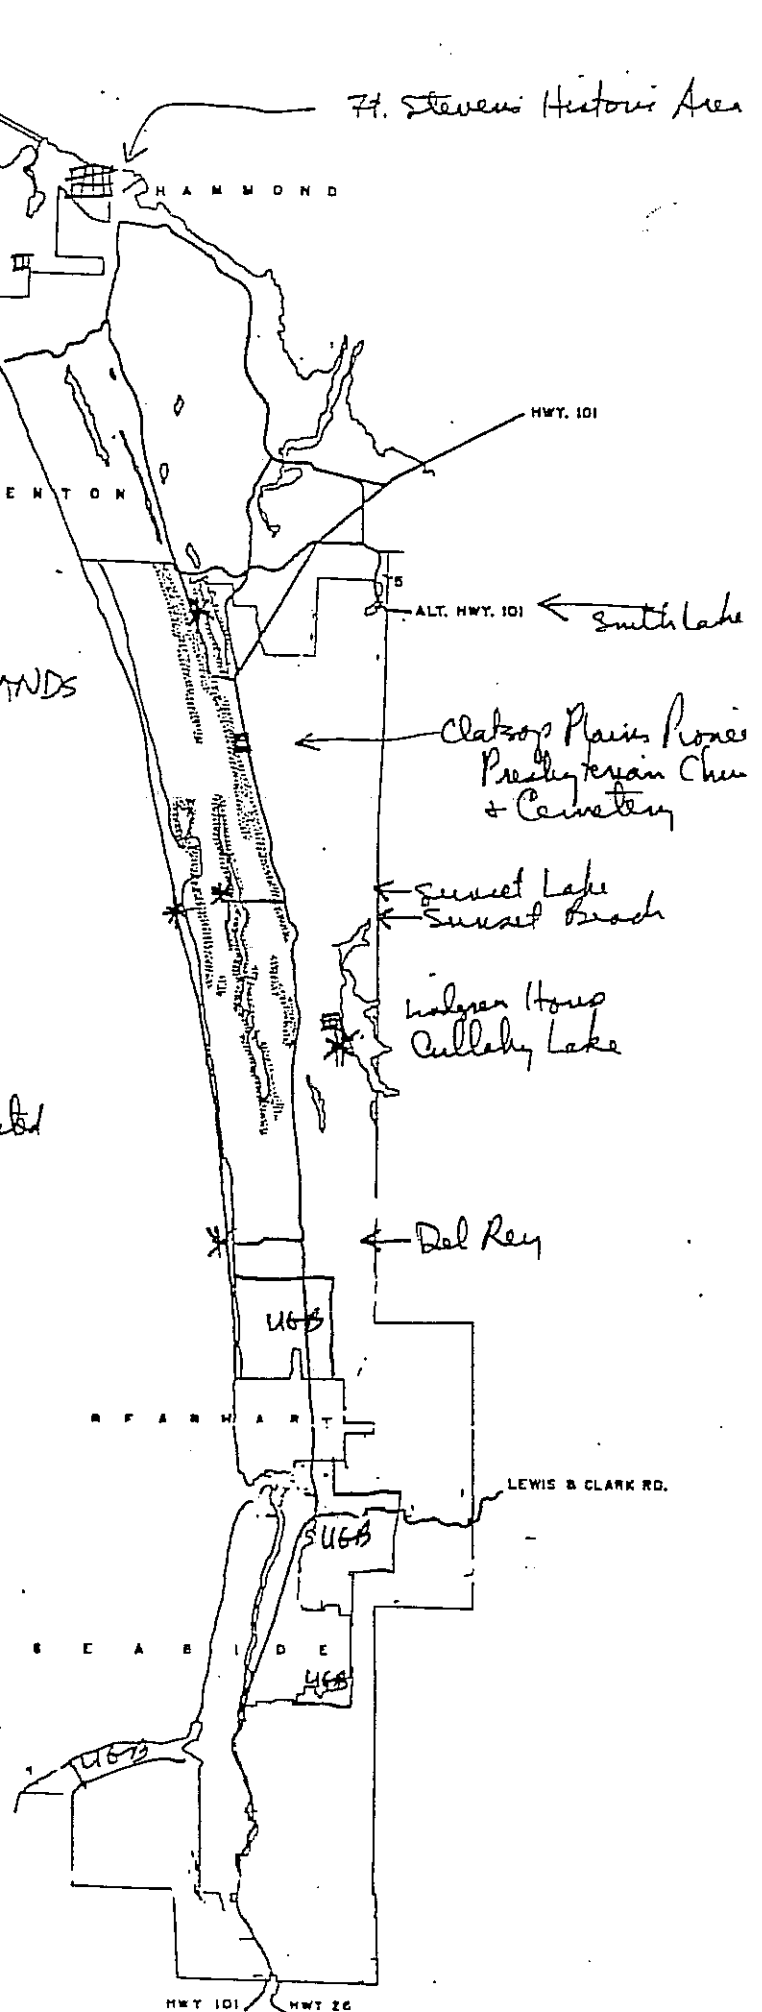 Ft. Stevens Historic Area
HAMMOND
HWY. 101
ENTON
5
ALT. HWY. 101
Smith Lake
ANDS
Clatsop Plains Pionee
Presbyterian Chu
& Cemetery
Sunset Lake
Sunset Beach
House
Cullaby Lake
Del Rey
UGB
GEARHART
LEWIS & CLARK RD.
UGB
SEASIDE
UGB
UGB
HWY 101
HWY 26